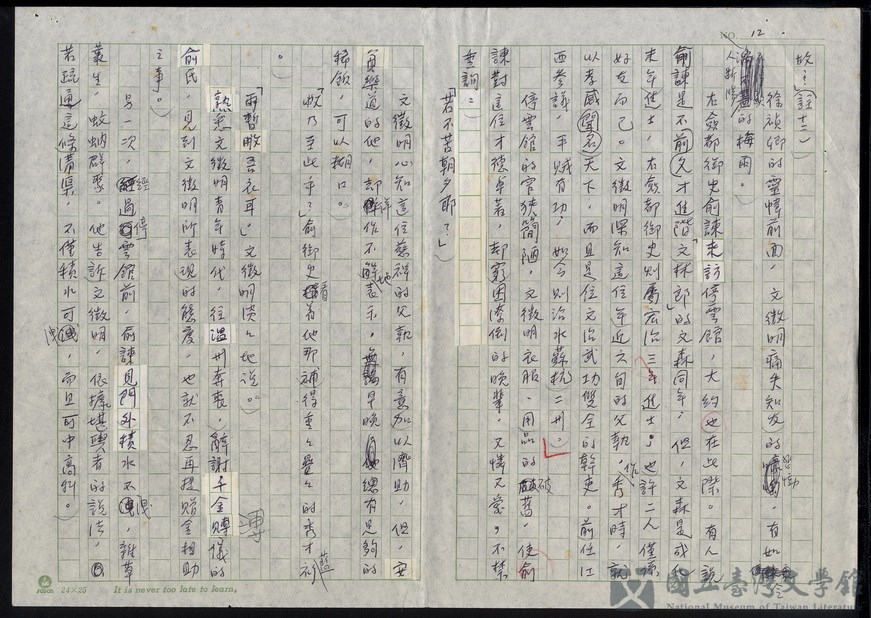 NO. 12
故主(註十二)
徐禎卿的靈幃前面,文徵明痛失知友的悲慟,有如
人斷腸的梅雨。
左僉都御史俞諫來訪停雲館,大約也在此際。有人說
俞諫是不前久才進階「文林郎」的文森同年,但,文森是成化
未年進士,右僉都御史則舉弘治三年進士;也許二人僅係
好友而已。文徵明深知這位年近六旬的父執,作秀才時,就
以孝感聞名天下,而且是位文治武功雙全的幹吏。前任江
西參議,平賊有功,如今則治水蘇杭二州。
停雲館的窄狹簡陋,文徵明衣服、用品的破舊,使俞
諫對這位才德卓著,卻窮困潦倒的晚輩,又憐又愛,不禁
垂詢:
「若不苦朝夕耶?」
文徵明心知這位慈祥的父執,有意加以濟助,但,安
貧樂道的他,卻佯作不解地表示,早晚他總有足夠的
稀飯,可以糊口。
「帔乃至此乎?」俞御史看着他那補得重重疊疊的秀才藍衫
。
「雨暫敝吾衣耳」文徵明淡淡地說。
熟悉文徵明青年時代,往溫州奔喪,辭謝千金賻儀的
俞氏,見到文徵明所表現的態度,也就不忍再提贈金相助
之事。
另一次,經過停雲館前,俞諫見門外積水不洩,雜草
叢生,蚊蚋群聚。他告訴文徵明,依據堪輿者的說法,
若疏通這條溝渠,不僅積水可洩,而且可中高科。
24×25
It is never too late to learn.
國立臺灣文學館
National Museum of Taiwan Literature